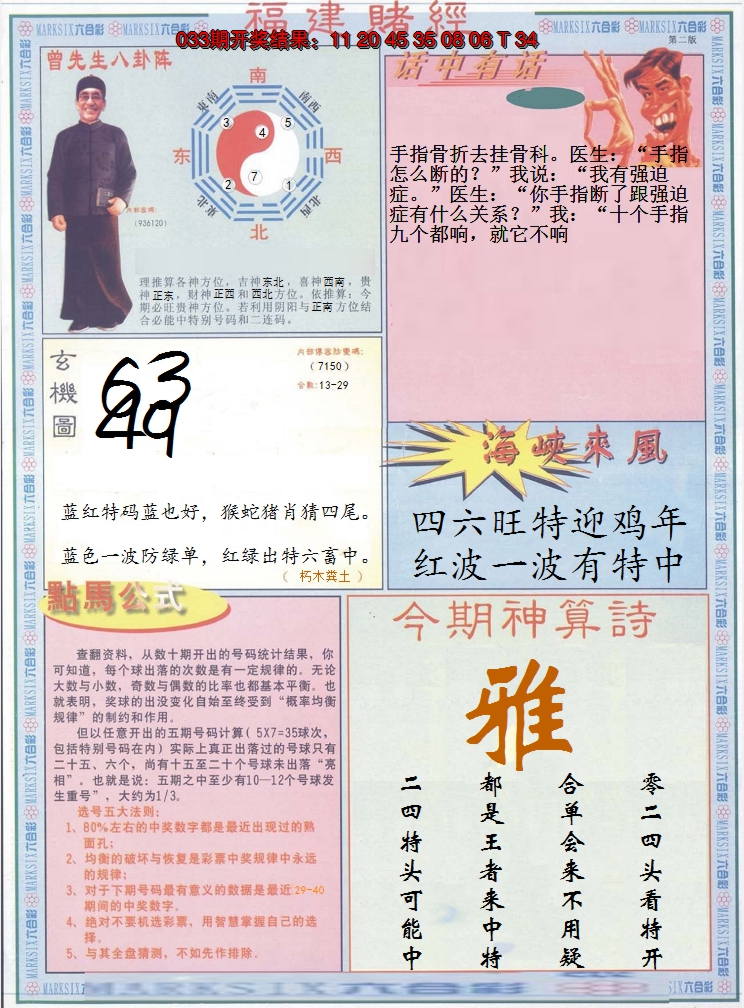 福建賭經
033期开奖结果：11 20 45 35 08 06 T 34
第二版
MARKSIX六合彩
曾先生八卦阵
南
東南
南西
3
5
4
东
西
7
2
1
東北
北西
北
内部密碼:
(936120)
理推算各神方位，吉神东北，喜神西南，贵
神正东，财神正西和西北方位。依推算：今
期必旺贵神方位。若利用阴阳与正南方位结
合必能中特别号码和二连码。
话中有话
手指骨折去挂骨科。医生：“手指
怎么断的？”我说：“我有强迫
症。”医生：“你手指断了跟强迫
症有什么关系？”我：“十个手指
九个都响，就它不响
玄機圖
63
49
内部傳密防變碼:
(7150)
合数:13-29
蓝红特码蓝也好，猴蛇猪肖猜四尾。
蓝色一波防绿单，红绿出特六畜中。
（ 朽木粪土 ）
海峽來風
四六旺特迎鸡年
红波一波有特中
點馬公式
查翻资料，从数十期开出的号码统计结果，你
可知道，每个球出落的次数是有一定规律的。无论
大数与小数，奇数与偶数的比率也都基本平衡。也
就表明，奖球的出没变化自始至终受到“概率均衡
规律”的制约和作用。
但以任意开出的五期号码计算( 5X7=35球次，
包括特别号码在内) 实际上真正出落过的号球只有
二十五、六个，尚有十五至二十个号球未出落“亮
相”。也就是说：五期之中至少有10—12个号球发
生重号”，大约为1/3。
选号五大法则:
1、80%左右的中奖数字都是最近出现过的熟
面孔;
2、均衡的破坏与恢复是彩票中奖规律中永远
的规律;
3、对于下期号码最有意义的数据是最近29-40
期间的中奖数字。
4、绝对不要机选彩票，用智慧掌握自己的选
择。
5、与其全盘猜测，不如先作排除。
今期神算詩
雅
零二四头看特开
合单会来不用疑
都是王者来中特
二四特头可能中